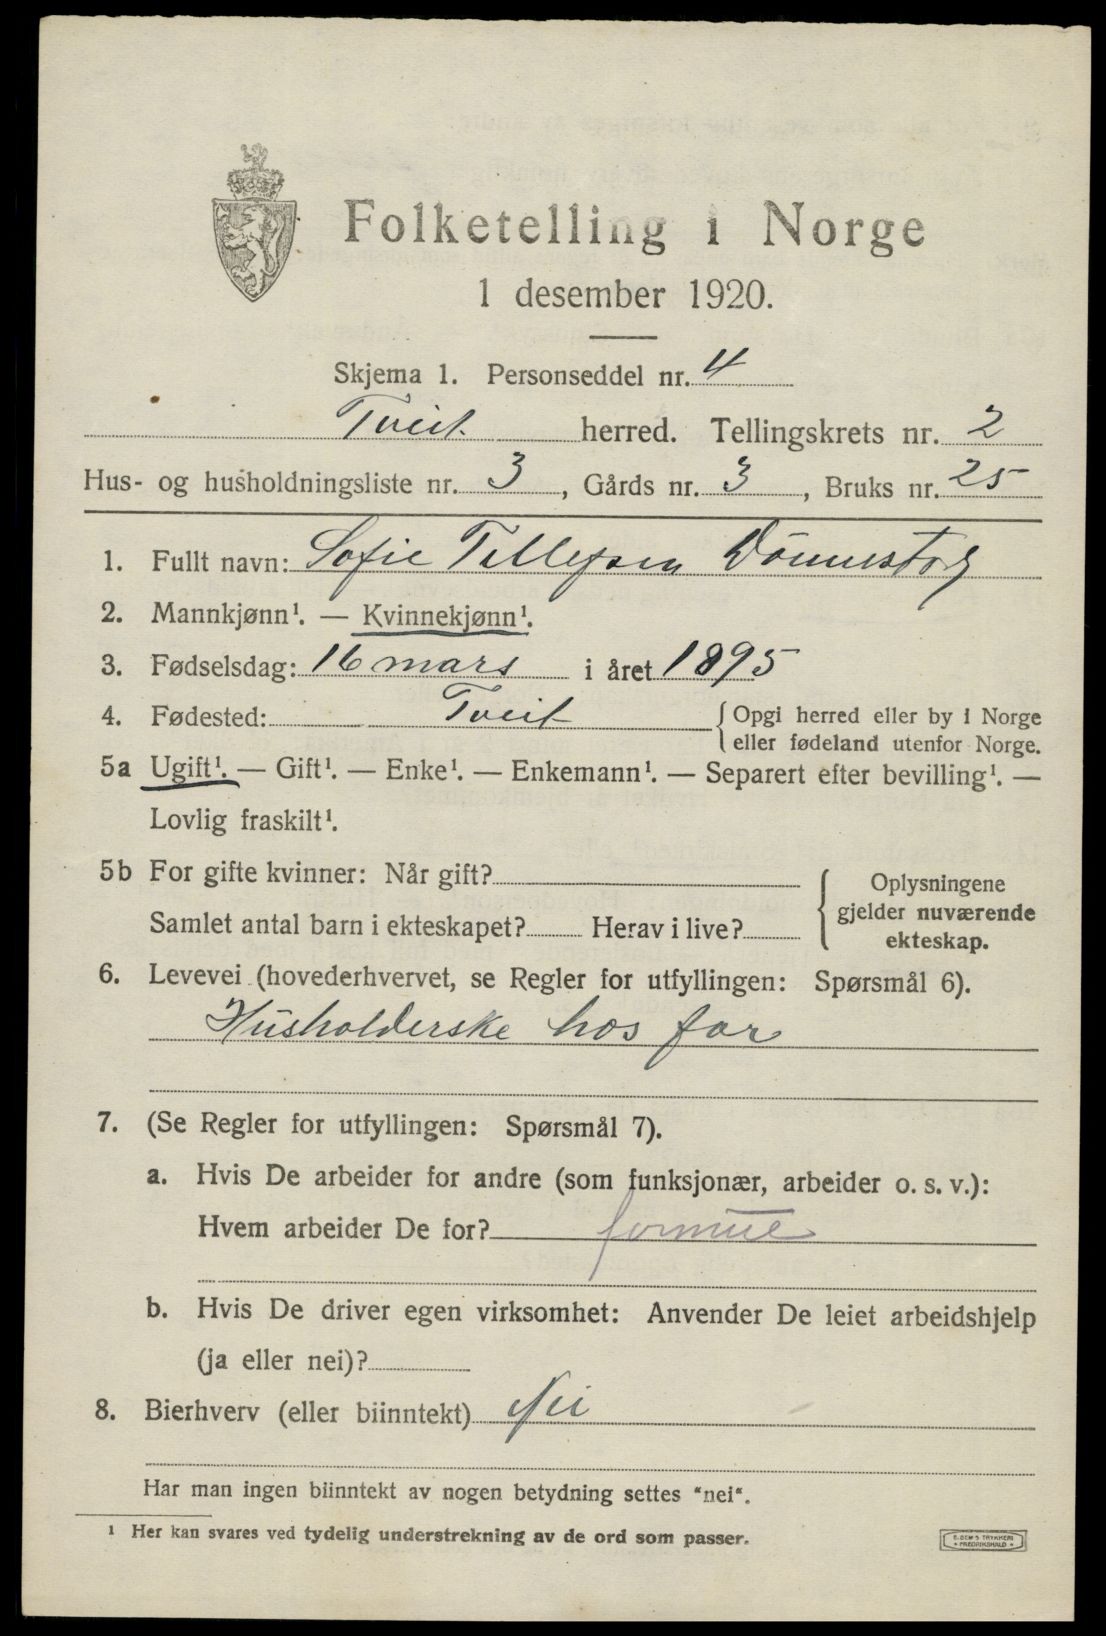 Folketelling i Norge
1 desember 1920.
Skjema 1. Personseddel nr. 4
Tveit herred. Tellingskrets nr. 2
Hus- og husholdningsliste nr. 3, Gårds nr. 3, Bruks nr. 25
1. Fullt navn: Sofie Tellefsen Dønnestad
2. Mannkjønn¹. — Kvinnekjønn¹.
3. Fødselsdag: 16 mars i året 1895
4. Fødested: Tveit { Opgi herred eller by i Norge
eller fødeland utenfor Norge.
5a Ugift¹. — Gift¹. — Enke¹. — Enkemann¹. — Separert efter bevilling¹. —
Lovlig fraskilt¹.
5b For gifte kvinner: Når gift? { Oplysningene
gjelder nuværende
Samlet antal barn i ekteskapet? Herav i live?
ekteskap.
6. Levevei (hovederhvervet, se Regler for utfyllingen: Spørsmål 6).
Husholderske hos far
7. (Se Regler for utfyllingen: Spørsmål 7).
a. Hvis De arbeider for andre (som funksjonær, arbeider o. s. v.):
Hvem arbeider De for? formue
b. Hvis De driver egen virksomhet: Anvender De leiet arbeidshjelp
(ja eller nei)?
8. Bierhverv (eller biinntekt) Nei
Har man ingen biinntekt av nogen betydning settes "nei".
¹ Her kan svares ved tydelig understrekning av de ord som passer.
E. SEM'S TRYKKERI
• FREDRIKSHALD •